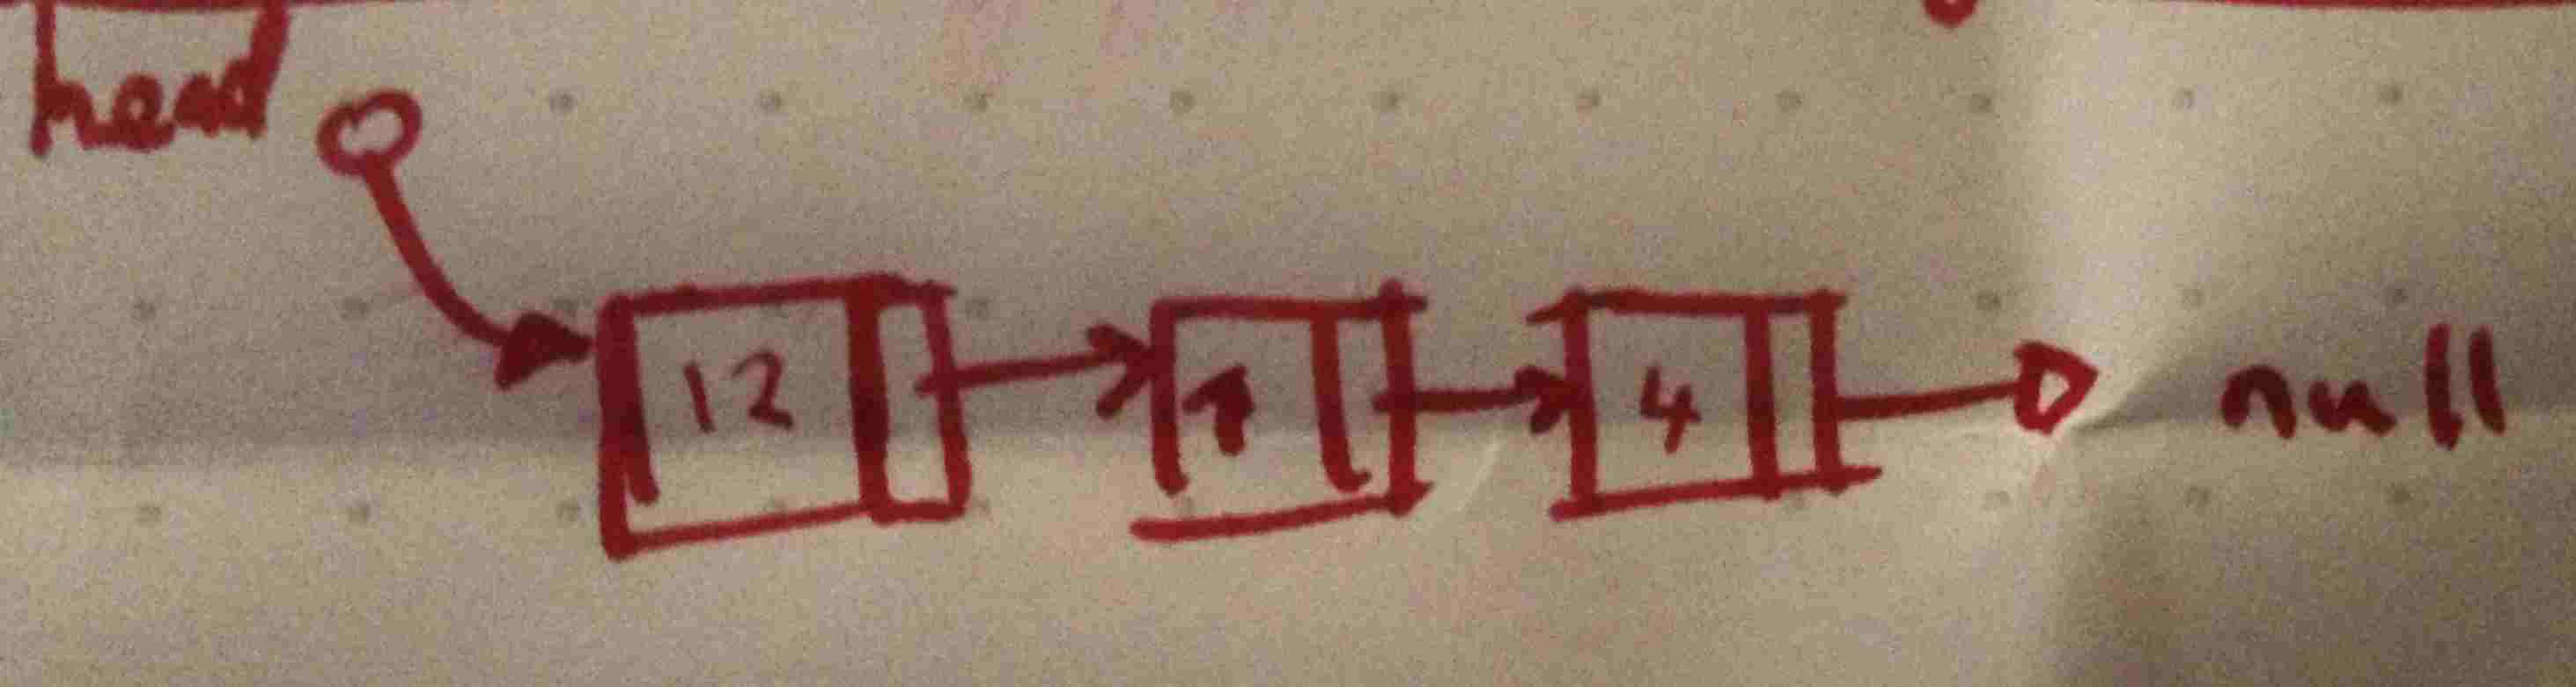 head
12
4
null